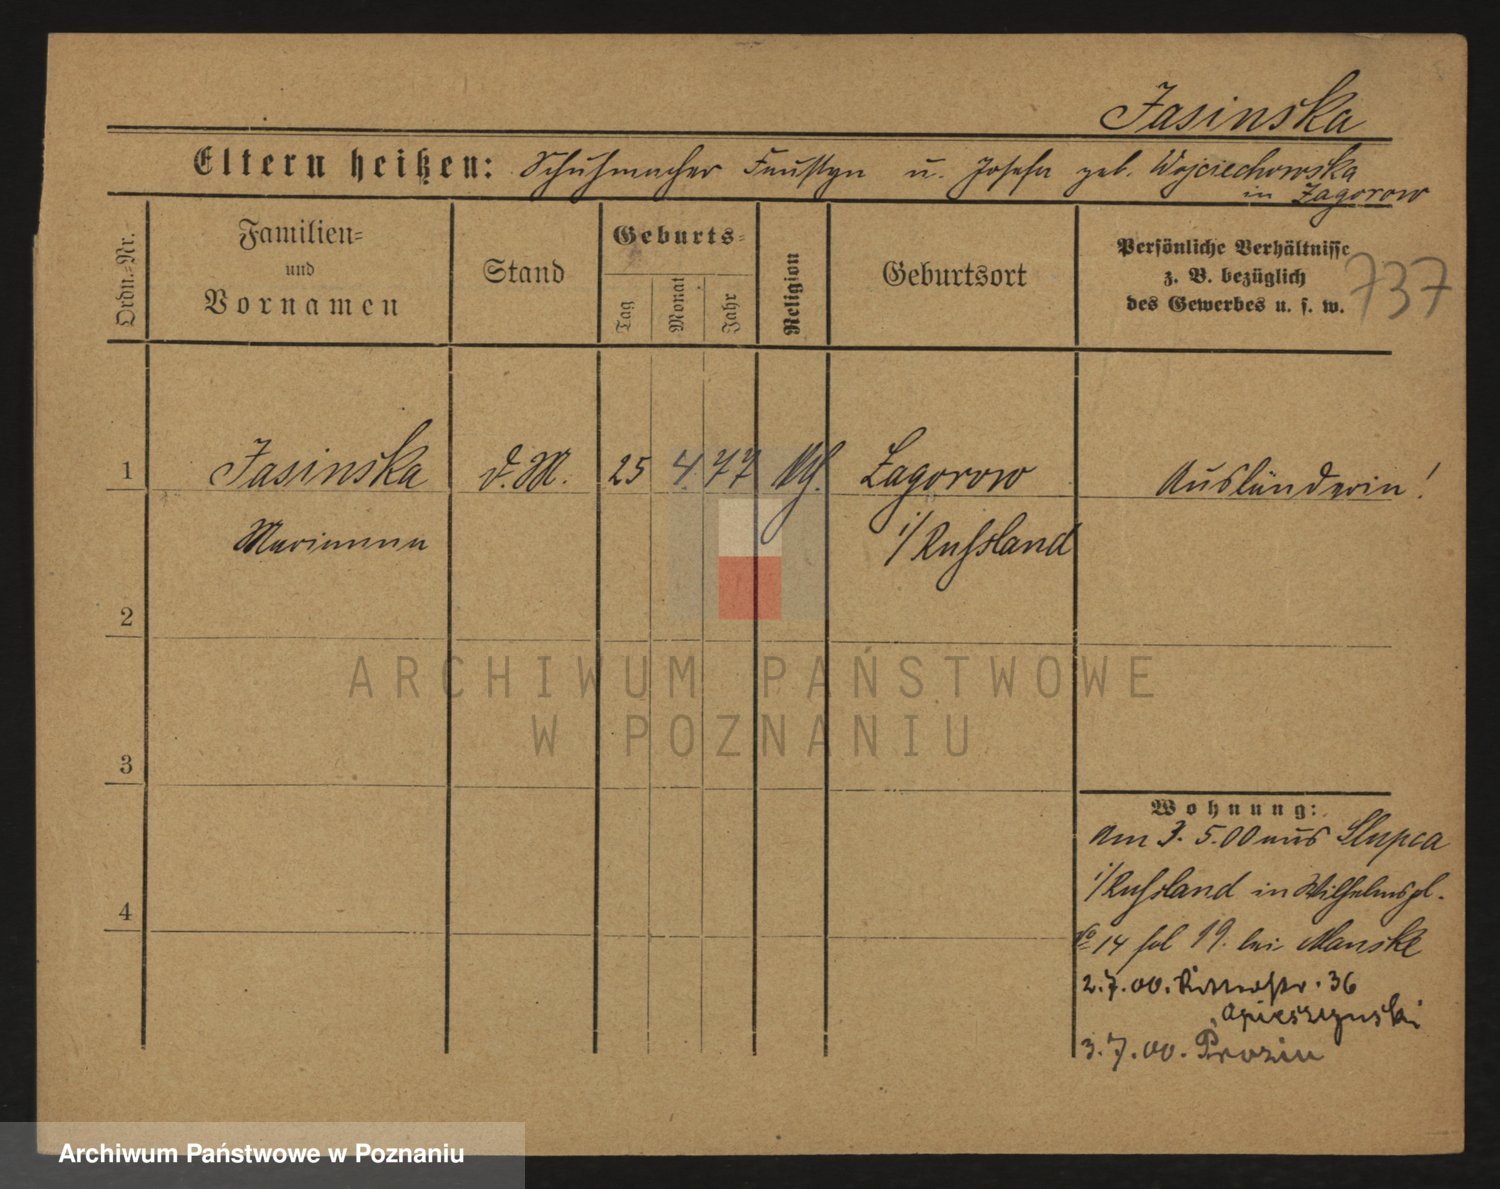 Jasinska
Eltern heißen: Schuhmacher Faustyn u. Josefa geb. Wojciechowska
in Zagorow
Ordn.-Nr.
Familien-
und
Vornamen
Stand
Geburts-
Tag
Monat
Jahr
Religion
Geburtsort
Persönliche Verhältnisse
z. B. bezüglich
des Gewerbes u. s. w.
737
1 Jasinska d. M. 25 4. 77 Zagorow Ausländerin!
Marianna i/Russland
2
3
4
Wohnung:
Am 3. 5.00 aus Slupca
i/Russland in Wilhelmspl.
No 14 bei Manske
2.7.00. Ritterstr. 36
3.7.00.
ARCHIWUM PAŃSTWOWE
W POZNANIU
Archiwum Państwowe w Poznaniu